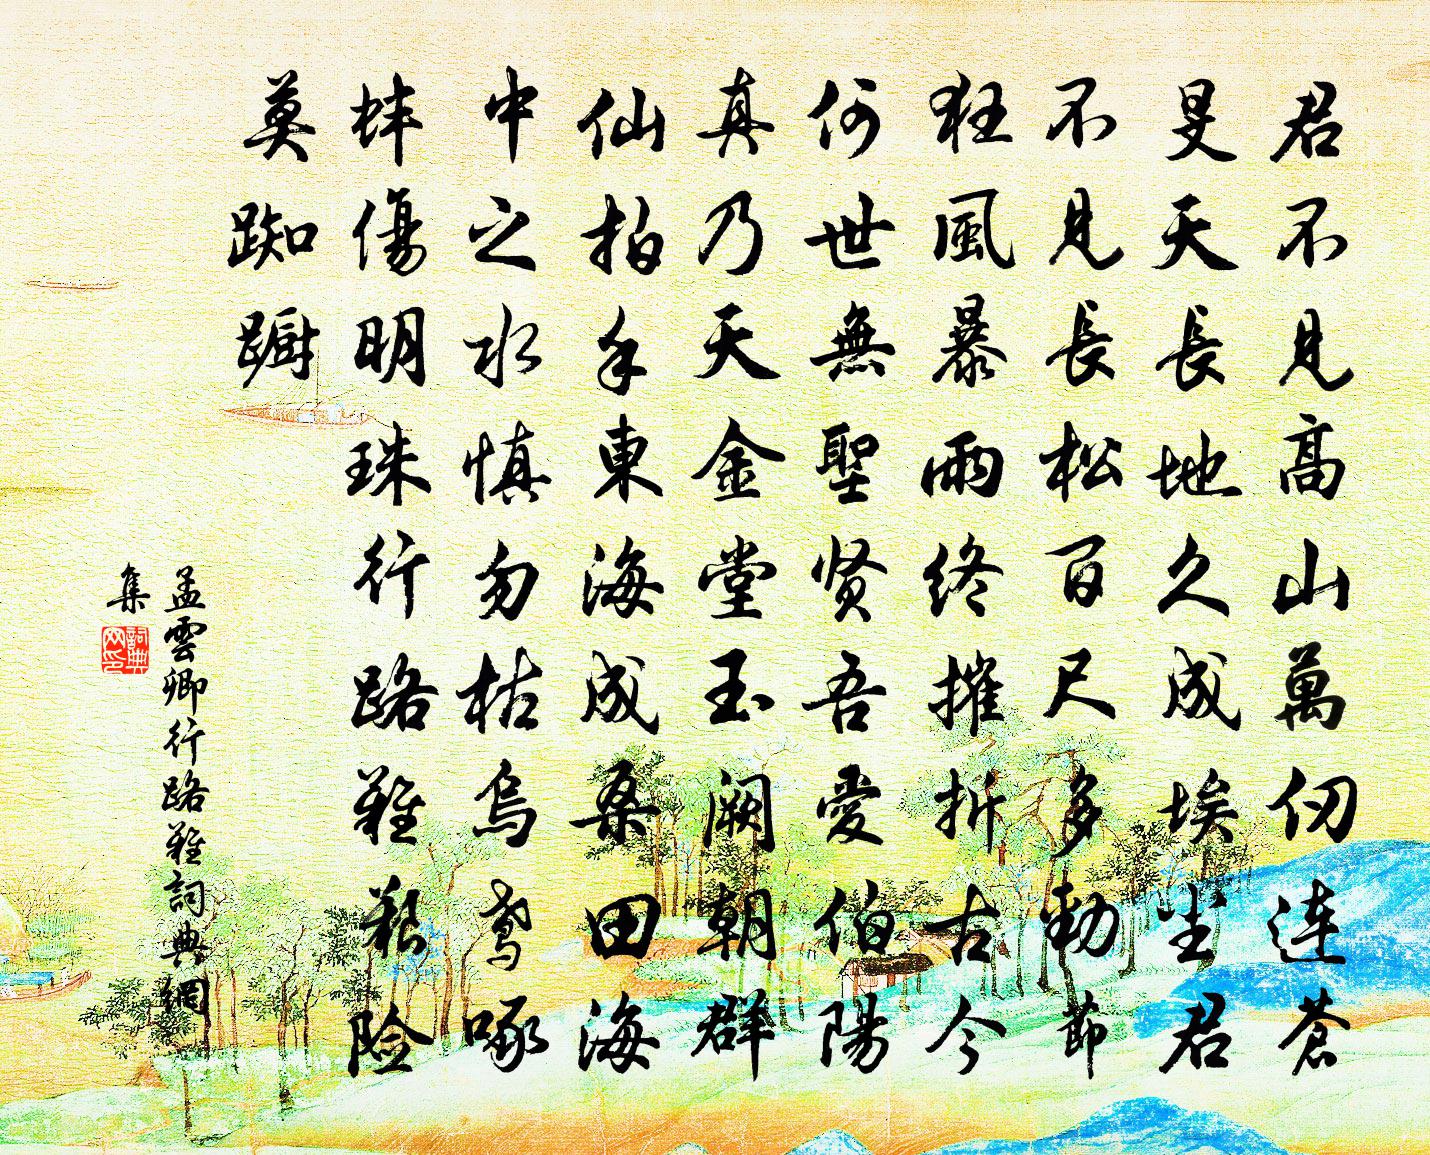 君不見高山萬仞连蒼
旻天長地久成埃尘君
不見長松百尺多勁節
狂風暴雨终摧折古今
何世無聖贤吾愛伯陽
真乃天金堂玉阙朝群
仙拍手東海成桑田海
中之水慎勿枯烏鸢啄
蚌傷明珠行路難艱险
莫踟蹰
孟雲卿行路難詞典網
集
詞典
网印